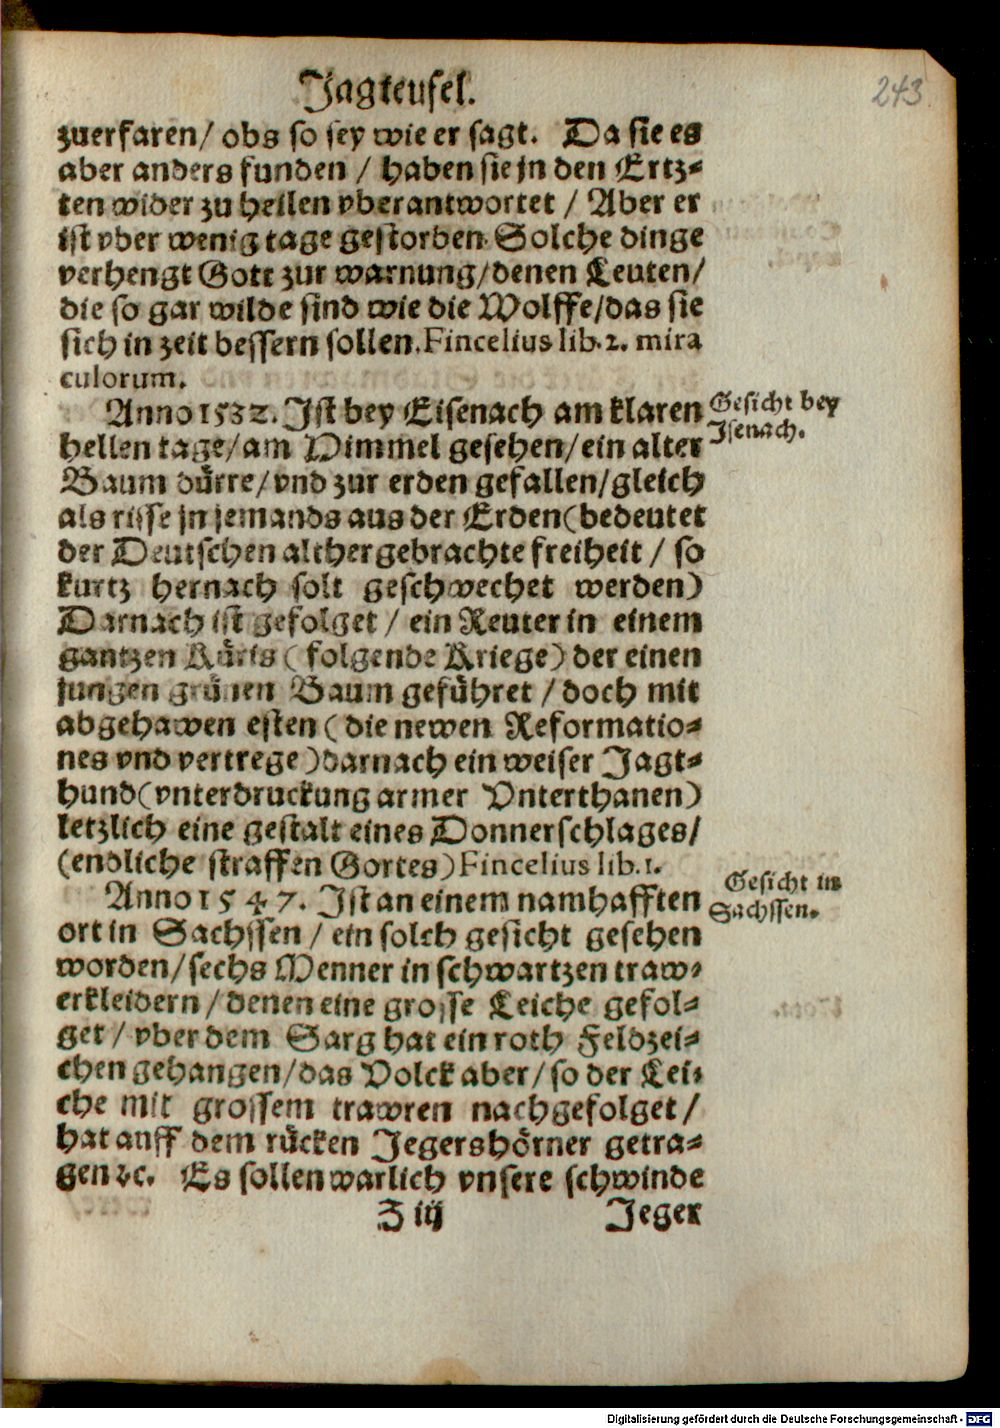 243
Jagteufel.
zuerfaren/ obs so sey wie er sagt. Da sie es
aber anders funden / haben sie jn den Ertz-
ten wider zu heilen vberantwortet / Aber er
ist vber wenig tage gestorben. Solche dinge
verhengt Gott zur warnung/denen Leuten/
die so gar wilde sind wie die Wolffe/das sie
sich in zeit bessern sollen.Fincelius lib.2. mira
culorum.
Anno 1532. Ist bey Eisenach am klaren
Gesicht bey
Isenach.
hellen tage/am Himmel gesehen/ein alter
Baum dürre/vnd zur erden gefallen/gleich
als risse jn jemands aus der Erden(bedeutet
der Deutschen althergebrachte freiheit / so
kurtz hernach solt geschwechet werden)
Darnach ist gefolget / ein Reuter in einem
gantzen Küris ( folgende Kriege) der einen
jungen grünen Baum geführet / doch mit
abgehawen esten ( die newen Reformatio-
nes vnd vertrege )darnach ein weiser Jagt-
hund(vnterdruckung armer Vnterthanen)
letzlich eine gestalt eines Donnerschlages/
(endliche straffen Gottes) Fincelius lib.1.
Anno 1547. Ist an einem namhafften
Gesicht in
Sachssen.
ort in Sachssen / ein solch gesicht gesehen
worden/sechs Menner in schwartzen traw-
erkleidern / denen eine grosse Leiche gefol-
get / vber dem Sarg hat ein roth Feldzei-
chen gehangen/das Volck aber/ so der Lei-
che mit grossem trawren nachgefolget /
hat auff dem rücken Jegershörner getra-
gen ꝛc. Es sollen warlich vnsere schwinde
Z iij
Jeger
Digitalisierung gefördert durch die Deutsche Forschungsgemeinschaft - DFG